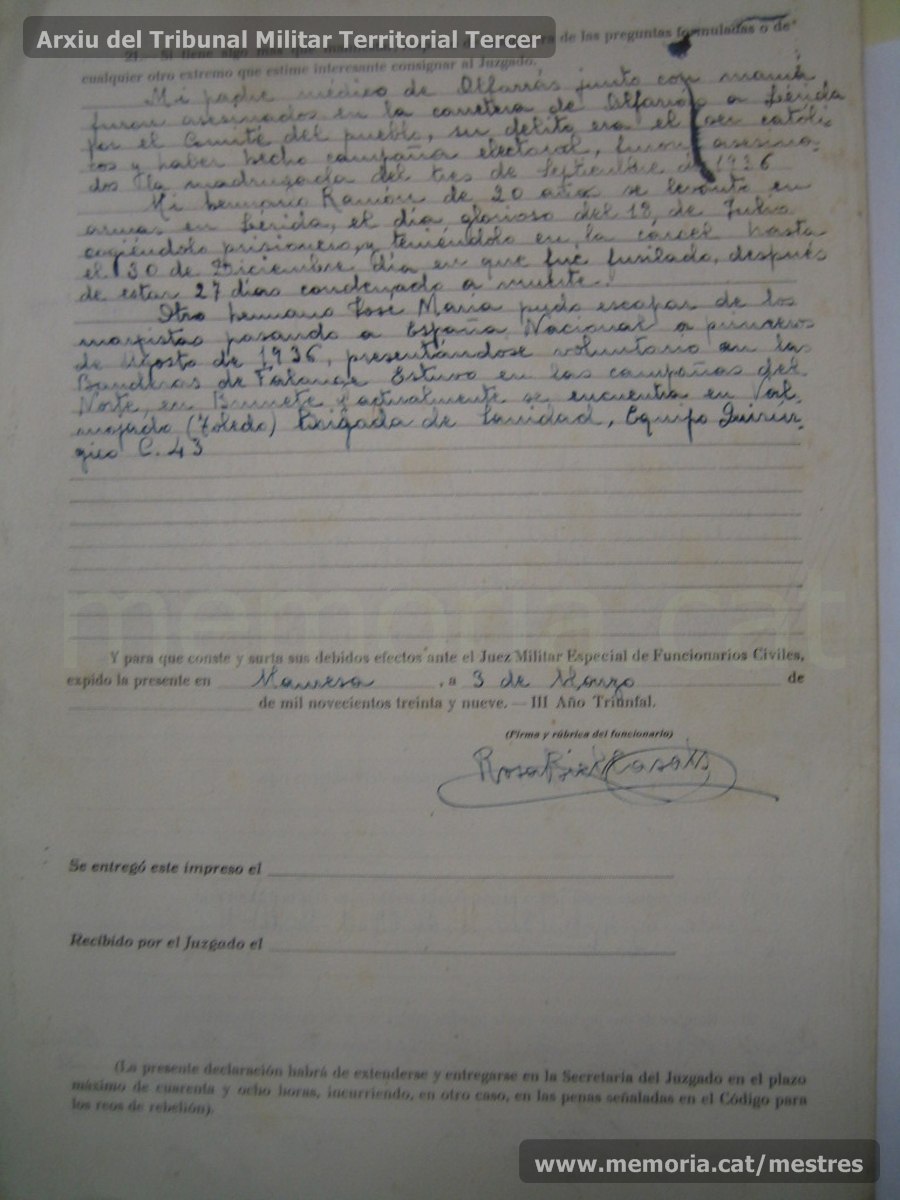 Arxiu del Tribunal Militar Territorial Tercer
21.— Si tiene algo más que de las preguntas formuladas o de
cualquier otro extremo que estime interesante consignar al Juzgado.
Mi padre médico de Alfarrás junto con mamá
furon asesinados en la carretera de Alfarrás a Lérida
por el Comité del pueblo, su delito era el ser católi-
cos y haber hecho campaña electoral, furon asesina-
dos la madrugada del tres de Septiembre de 1936
Mi hermano Ramón de 20 años se levantó en
armas en Lérida, el día glorioso del 19 de Julio
cogiéndolo prisionero, y teniéndolo en la carcel hasta
el 30 de Diciembre día en que fue fusilado, después
de estar 27 días condenado a muerte.
Otro hermano José María pudo escapar de los
marxistas pasando a España Nacional a primeros
de Agosto de 1936, presentándose voluntario en las
Banderas de Falange Estuvo en las campañas del
Norte, en Brunete y actualmente se encuentra en Val-
mojado (Toledo) Brigada de Sanidad, Equipo Quirur-
gico C. 43
memoria.cat
Y para que conste y surta sus debidos efectos ante el Juez Militar Especial de Funcionarios Civiles,
expido la presente en Manresa, a 3 de Marzo de
de mil novecientos treinta y nueve. — III Año Triunfal.
(Firma y rúbrica del funcionario)
Rosa Biel Casals
Se entregó este impreso el
Recibido por el Juzgado el
(La presente declaración habrá de extenderse y entregarse en la Secretaría del Juzgado en el plazo
máximo de cuarenta y ocho horas, incurriendo, en otro caso, en las penas señaladas en el Código para
los reos de rebelión).
www.memoria.cat/mestres